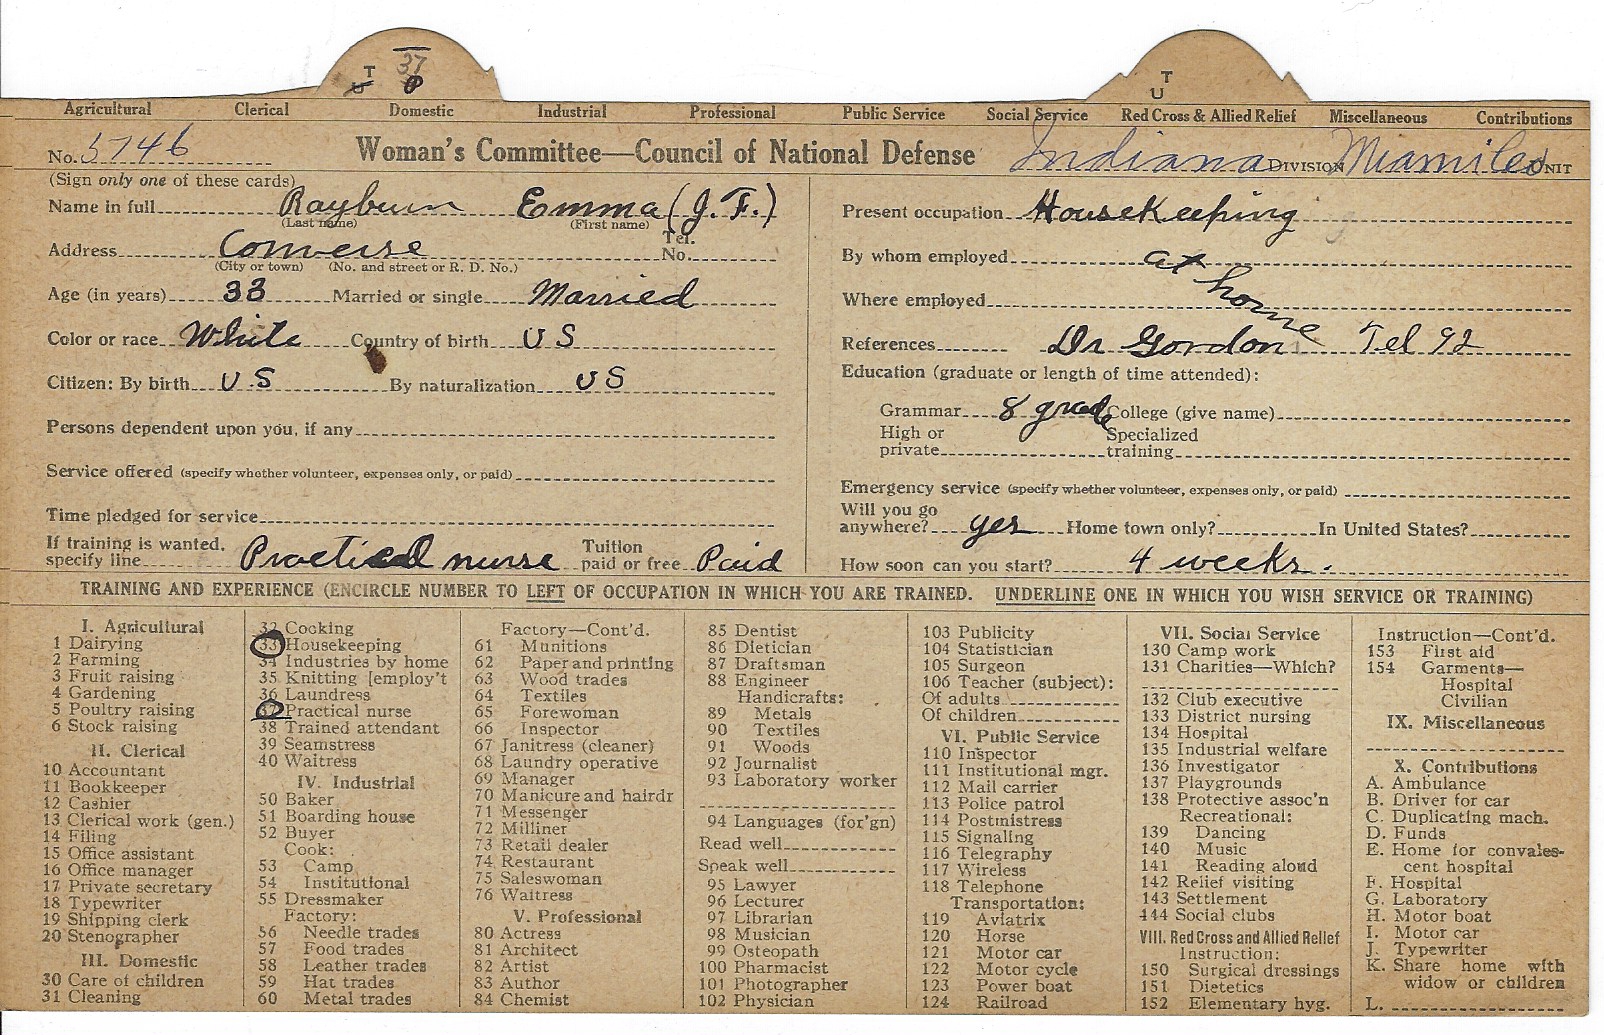 37
T U P
T
U
Agricultural Clerical Domestic Industrial Professional Public Service Social Service Red Cross & Allied Relief Miscellaneous Contributions
No. 5746 Woman's Committee—Council of National Defense Indiana DIVISION UNIT
(Sign only one of these cards)
Name in full Rayburn Emma (J. F.)
(Last name) (First name)
Address Converse Tel. No.
(City or town) (No. and street or R. D. No.)
Age (in years) 33 Married or single Married
Color or race White Country of birth U S
Citizen: By birth U.S By naturalization U S
Persons dependent upon you, if any
Service offered (specify whether volunteer, expenses only, or paid)
Time pledged for service
If training is wanted, specify line Practical nurse Tuition paid or free Paid
Present occupation HouseKeeping
By whom employed at home
Where employed
References Dr Gordon Tel 92
Education (graduate or length of time attended):
Grammar 8 grade College (give name)
High or private Specialized training
Emergency service (specify whether volunteer, expenses only, or paid)
Will you go anywhere? yes Home town only? In United States?
How soon can you start? 4 weeks.
TRAINING AND EXPERIENCE (ENCIRCLE NUMBER TO LEFT OF OCCUPATION IN WHICH YOU ARE TRAINED. UNDERLINE ONE IN WHICH YOU WISH SERVICE OR TRAINING)
I. Agricultural
1 Dairying
2 Farming
3 Fruit raising
4 Gardening
5 Poultry raising
6 Stock raising
II. Clerical
10 Accountant
11 Bookkeeper
12 Cashier
13 Clerical work (gen.)
14 Filing
15 Office assistant
16 Office manager
17 Private secretary
18 Typewriter
19 Shipping clerk
20 Stenographer
III. Domestic
30 Care of children
31 Cleaning
32 Cooking
33 Housekeeping
34 Industries by home
35 Knitting [employ't
36 Laundress
37 Practical nurse
38 Trained attendant
39 Seamstress
40 Waitress
IV. Industrial
50 Baker
51 Boarding house
52 Buyer
Cook:
53 Camp
54 Institutional
55 Dressmaker
Factory:
56 Needle trades
57 Food trades
58 Leather trades
59 Hat trades
60 Metal trades
Factory—Cont'd.
61 Munitions
62 Paper and printing
63 Wood trades
64 Textiles
65 Forewoman
66 Inspector
67 Janitress (cleaner)
68 Laundry operative
69 Manager
70 Manicure and hairdr
71 Messenger
72 Milliner
73 Retail dealer
74 Restaurant
75 Saleswoman
76 Waitress
V. Professional
80 Actress
81 Architect
82 Artist
83 Author
84 Chemist
85 Dentist
86 Dietician
87 Draftsman
88 Engineer
Handicrafts:
89 Metals
90 Textiles
91 Woods
92 Journalist
93 Laboratory worker
94 Languages (for'gn)
Read well
Speak well
95 Lawyer
96 Lecturer
97 Librarian
98 Musician
99 Osteopath
100 Pharmacist
101 Photographer
102 Physician
103 Publicity
104 Statistician
105 Surgeon
106 Teacher (subject):
Of adults
Of children
VI. Public Service
110 Inspector
111 Institutional mgr.
112 Mail carrier
113 Police patrol
114 Postmistress
115 Signaling
116 Telegraphy
117 Wireless
118 Telephone
Transportation:
119 Aviatrix
120 Horse
121 Motor car
122 Motor cycle
123 Power boat
124 Railroad
VII. Social Service
130 Camp work
131 Charities—Which?
132 Club executive
133 District nursing
134 Hospital
135 Industrial welfare
136 Investigator
137 Playgrounds
138 Protective assoc'n
Recreational:
139 Dancing
140 Music
141 Reading aloud
142 Relief visiting
143 Settlement
144 Social clubs
VIII. Red Cross and Allied Relief
Instruction:
150 Surgical dressings
151 Dietetics
152 Elementary hyg.
Instruction—Cont'd.
153 First aid
154 Garments—
Hospital
Civilian
IX. Miscellaneous
X. Contributions
A. Ambulance
B. Driver for car
C. Duplicating mach.
D. Funds
E. Home for convales-
cent hospital
F. Hospital
G. Laboratory
H. Motor boat
I. Motor car
J. Typewriter
K. Share home with
widow or children
L.